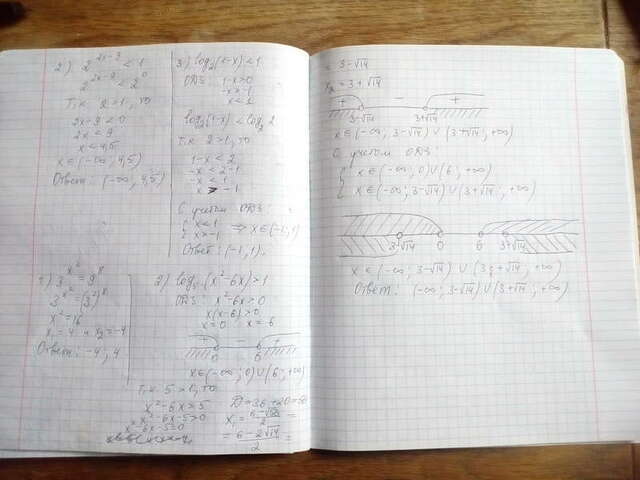 2) 2^(2x-9) < 1
2^(2x-9) < 2^0
Т.к. 2>1, то
2x-9<0
2x<9
x<4,5
x∈(-∞; 4,5)
Ответ: (-∞; 4,5)
3) log₂(1-x)<1
ОДЗ: 1-x>0
-x>-1
x<1
log₂(1-x)<log₂2
Т.к. 2>1, то
1-x<2
-x<2-1
-x<1
x>-1
С учетом ОДЗ:
{ x<1
{ x>-1 ⇒ x∈(-1;1)
Ответ: (-1;1).
1) 3^(x²)=9^8
3^(x²)=(3²)^8
x²=16
x₁=4 и x₂=-4
Ответ: -4; 4
2) log₅(x²-6x)>1
ОДЗ: x²-6x>0
x(x-6)>0
x=0 x=6
+ - +
0 6
x∈(-∞; 0)∪(6; +∞)
Т.к. 5>1, то
x²-6x>5
x²-6x-5>0
x²-6x-5=0
D=36+20=56
x₁=(6-√56)/2=
=(6-2√14)/2=
= 3-√14
x₂=3+√14
+ - +
3-√14 3+√14
x∈(-∞; 3-√14)∪(3+√14; +∞)
С учетом ОДЗ:
{ x∈(-∞; 0)∪(6; +∞)
{ x∈(-∞; 3-√14)∪(3+√14; +∞)
3-√14 0 6 3+√14
x∈(-∞; 3-√14)∪(3+√14; +∞)
Ответ: (-∞; 3-√14)∪(3+√14; +∞)